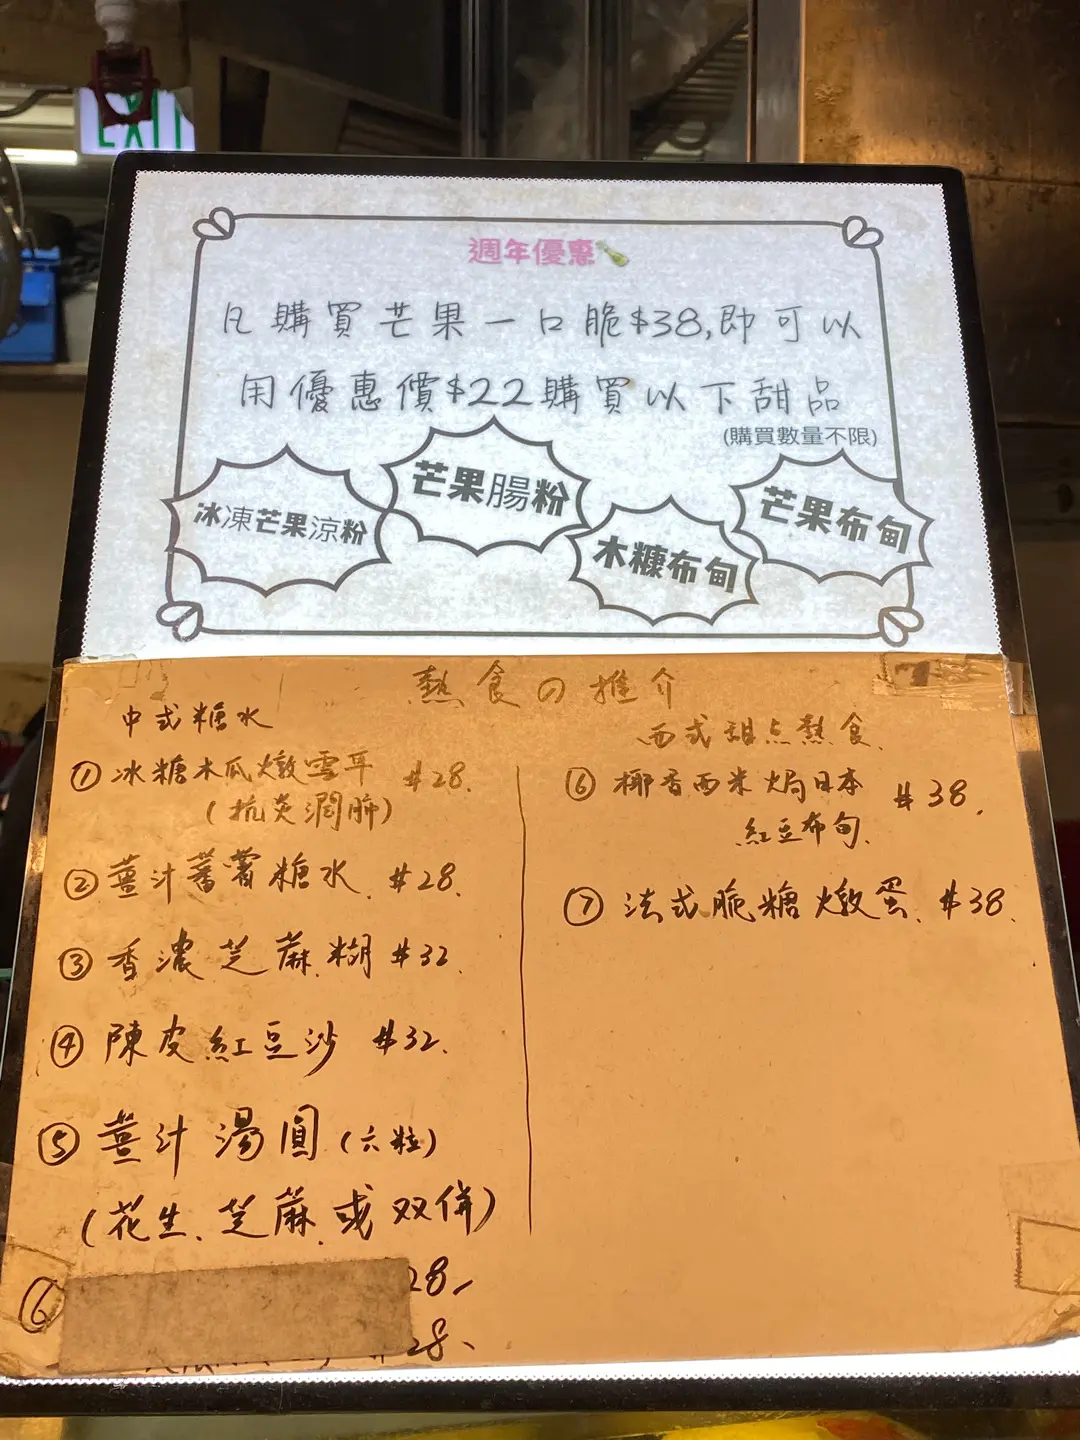 EXIT
週年優惠
凡購買芒果一口脆$38,即可以
用優惠價$22購買以下甜品
(購買數量不限)
冰凍芒果涼粉
芒果腸粉
木糠布甸
芒果布甸
熱食の推介
中式糖水
①冰糖木瓜燉雪耳 $28.
(抗炎潤肺)
②薑汁蕃薯糖水.$28.
③香濃芝麻糊 $32.
④陳皮紅豆沙 $32.
⑤薑汁湯圓(六粒)
(花生.芝麻.或双併)
28.
⑥
28.
西式甜点熱食.
⑥椰香西米焗日本 $38.
紅豆布甸.
⑦法式脆糖燉蛋.$38.